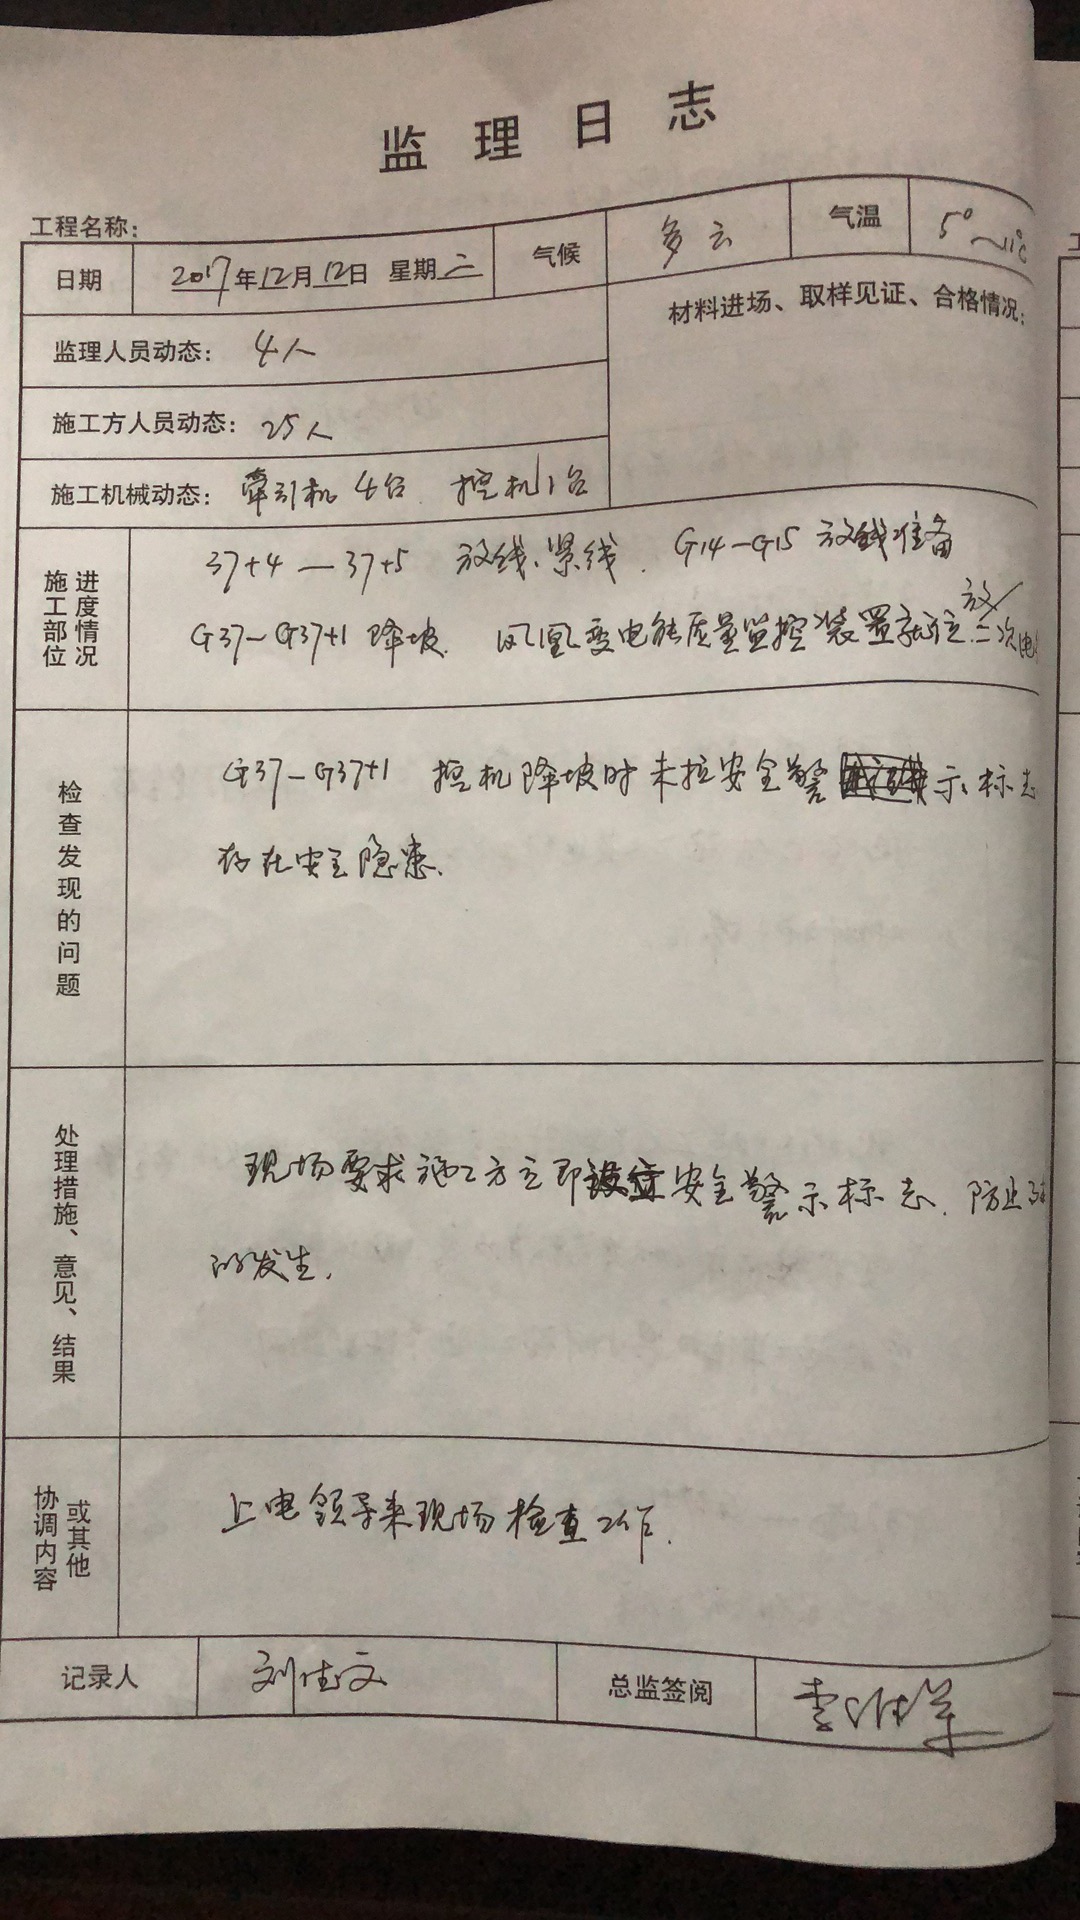 监理日志
工程名称:
日期 2017年12月12日 星期二 气候 多云 气温 5°~11℃
监理人员动态: 4人
材料进场、取样见证、合格情况:
施工方人员动态: 25人
施工机械动态: 牵引机4台 挖机1台
施工部位 进度情况
37+4—37+5 放线、紧线. G14—G15 放线准备
G37—G37+1 降坡. 凤凰变电能质量监控装置就位 放二次电
检查发现的问题
G37—G37+1 挖机降坡时未拉安全警示标志
存在安全隐患.
处理措施、意见、结果
现场要求施工方立即设立安全警示标志. 防止
的发生.
协调内容 或其他
上电领导来现场检查工作.
记录人 刘佳文 总监签阅